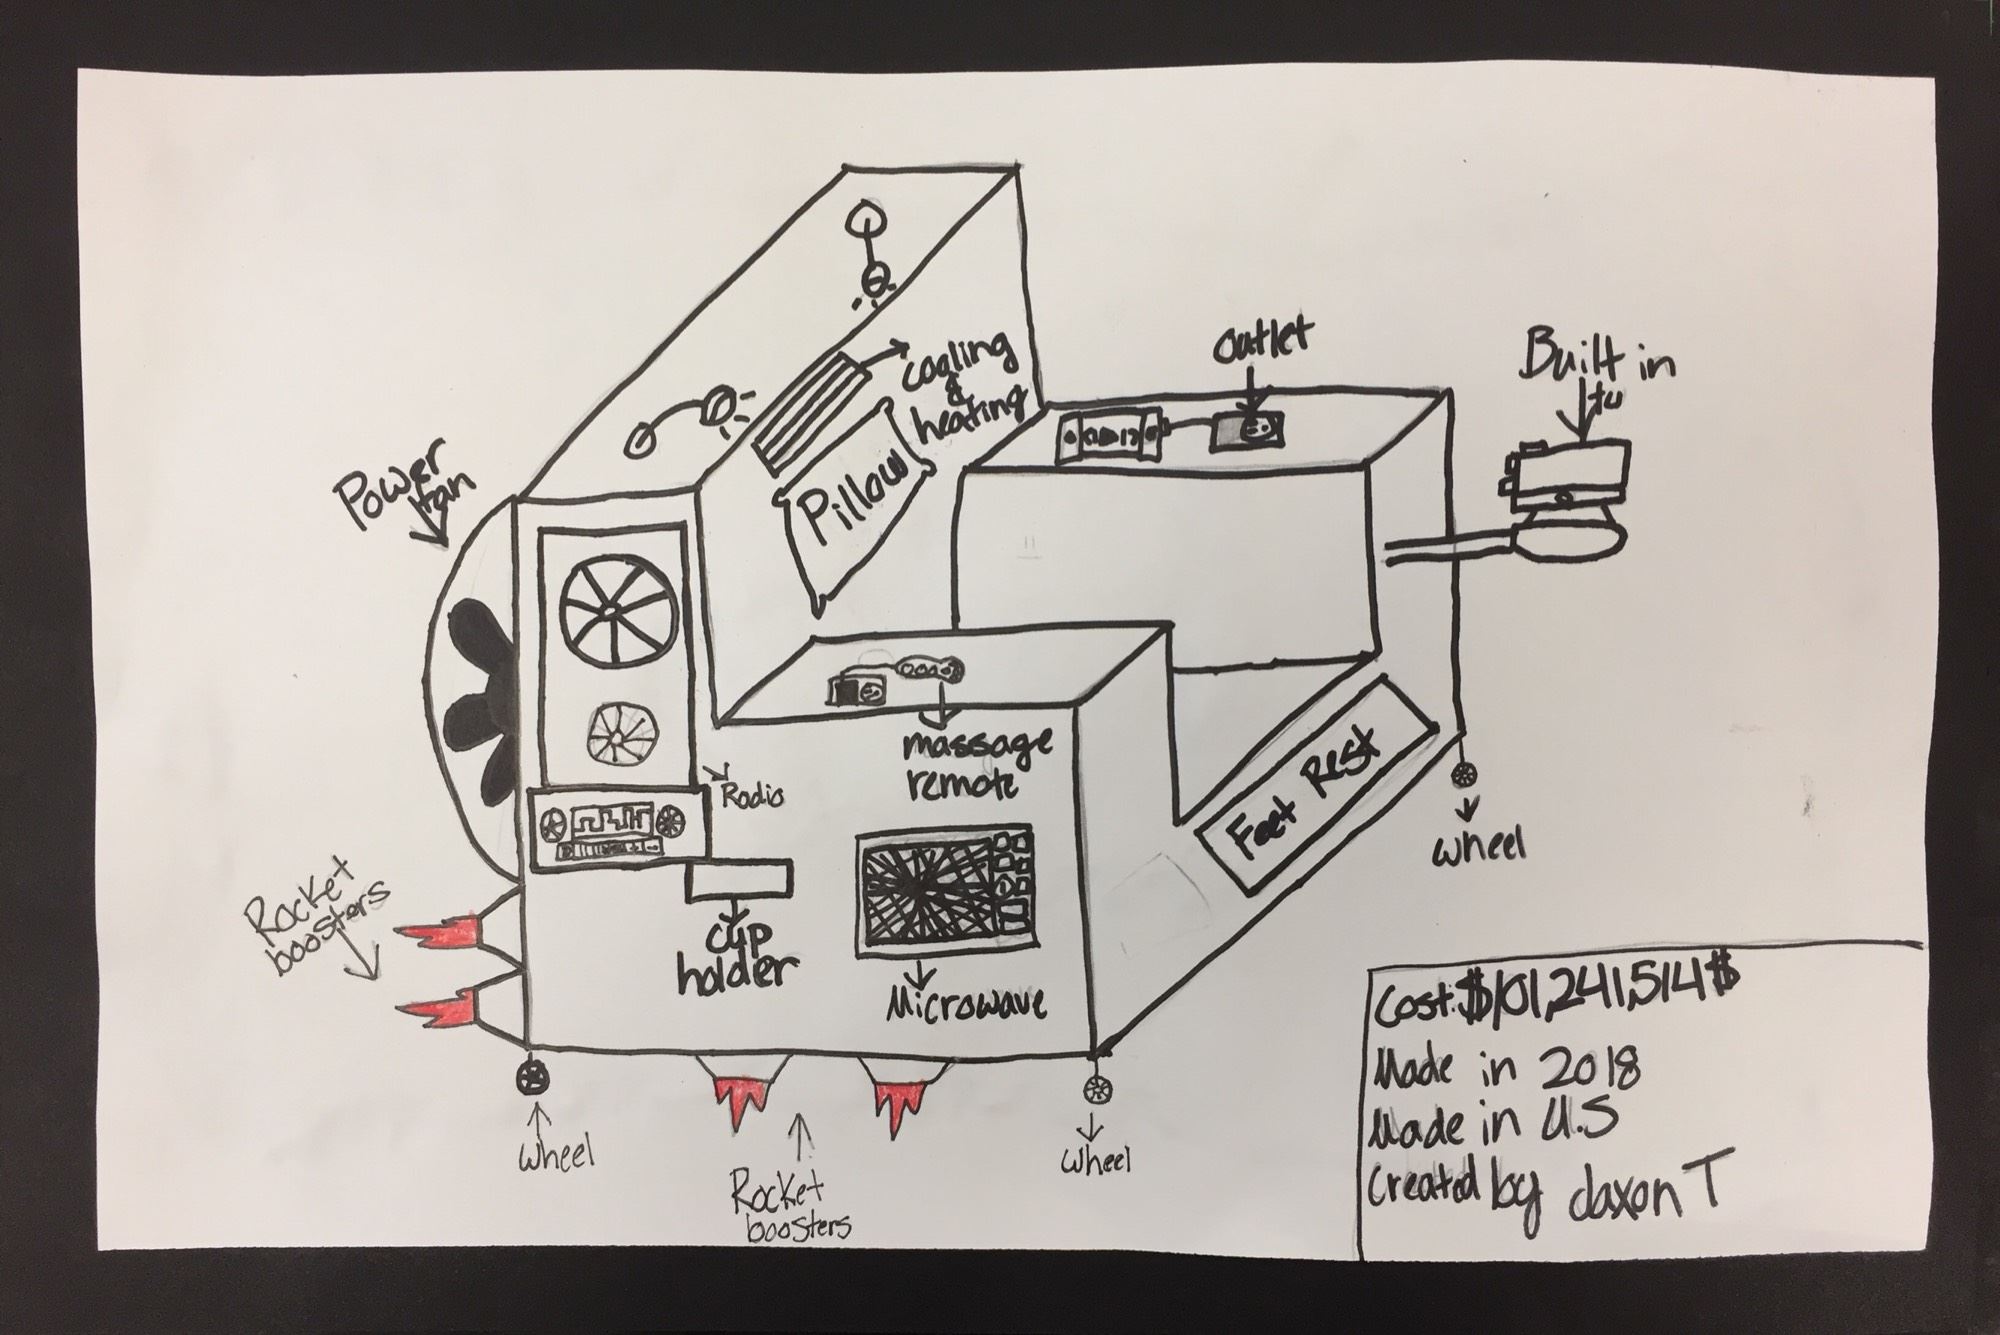 cooling
&
heating
outlet
Built in
tv
Power
fan
Pillow
massage
remote
Radio
Feet Rest
wheel
Rocket
boosters
cup
holder
Microwave
wheel
Rocket
boosters
wheel
Cost: $101,241,514$
Made in 2018
Made in U.S
Created by daxon T